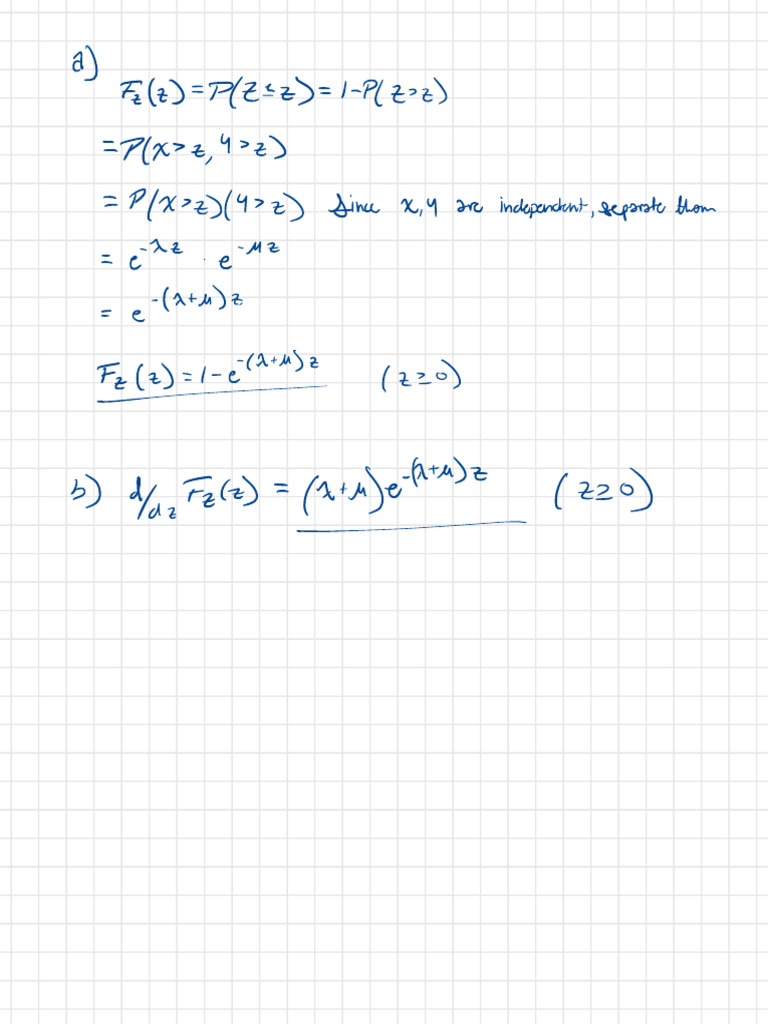 a)
F_Z(z) = P(Z ≤ z) = 1 - P(Z > z)
= P(X > z, Y > z)
= P(X > z)(Y > z) Since X, Y are independent, separate them
= e^{-λz} · e^{-μz}
= e^{-(λ+μ)z}
F_Z(z) = 1 - e^{-(λ+μ)z} (z ≥ 0)
b) d/dz F_Z(z) = (λ+μ)e^{-(λ+μ)z} (z ≥ 0)